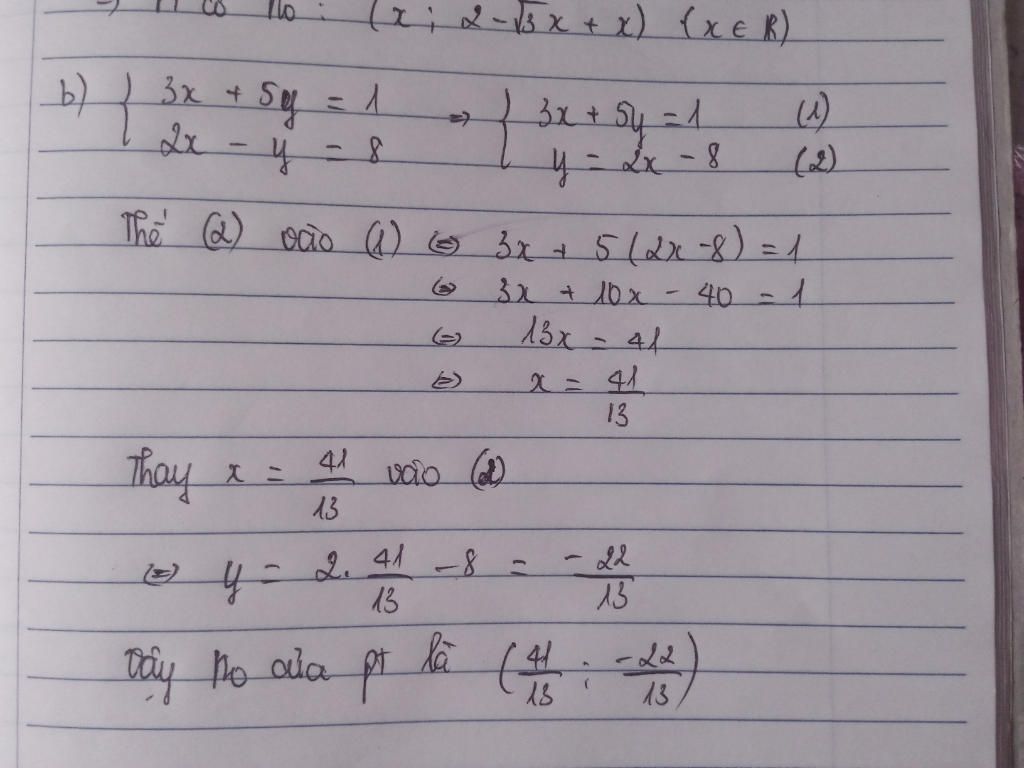 no : (x ; 2 - √3x + x) (x ∈ R)
b) { 3x + 5y = 1 ⇒ { 3x + 5y = 1 (1)
2x - y = 8 y = 2x - 8 (2)
Thế (2) vào (1) ⇔ 3x + 5(2x - 8) = 1
⇔ 3x + 10x - 40 = 1
⇔ 13x = 41
⇔ x = 41/13
Thay x = 41/13 vào (2)
⇔ y = 2. 41/13 - 8 = -22/13
Vậy no của pt là (41/13 ; -22/13)